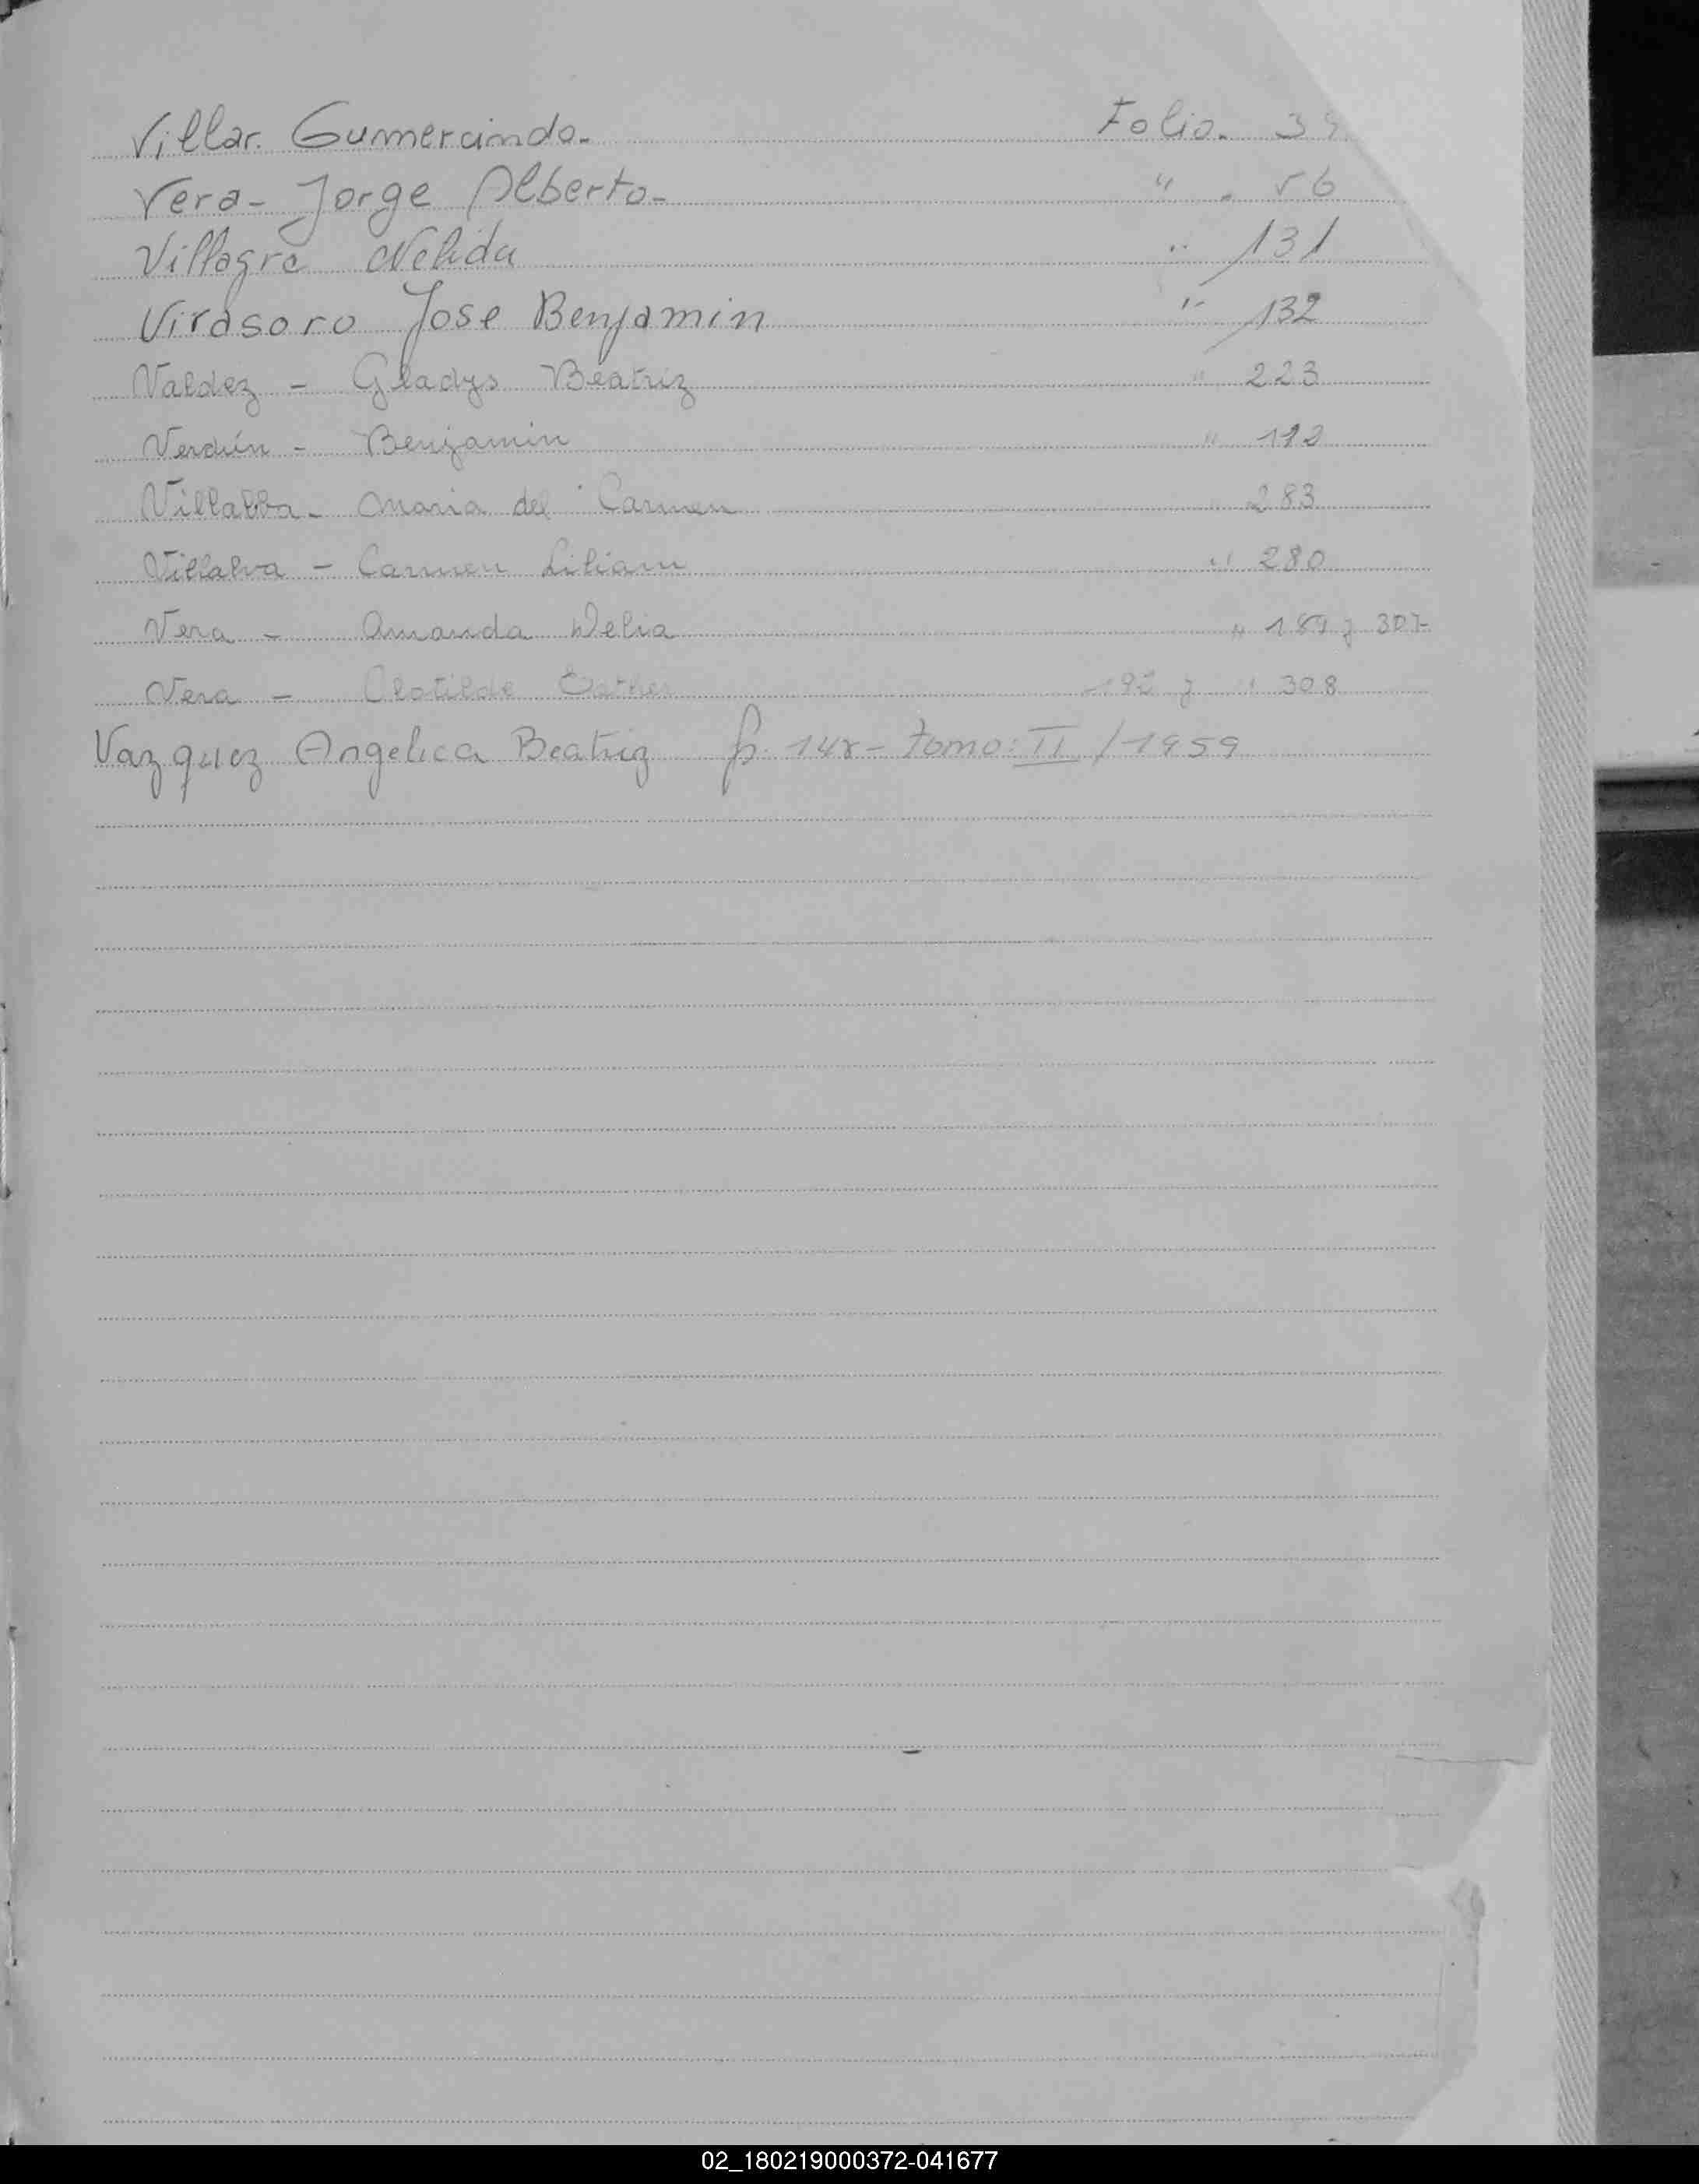 Villar. Gumercindo. Folio. 39
Vera - Jorge Alberto - " . 56
Villagra Nelida " 131
Virasoro Jose Benjamin " 132
Valdez - Gladys Beatriz " 223
Verdún - Benjamin "
Villalba - Maria del Carmen " 283
Villalva - Carmen Liliam " 280
Vera - Amanda Delia " y 307
Vera - Clotilde Esther y " 308
Vazquez Angelica Beatriz fº 148 - tomo: II / 1959
02_180219000372-041677